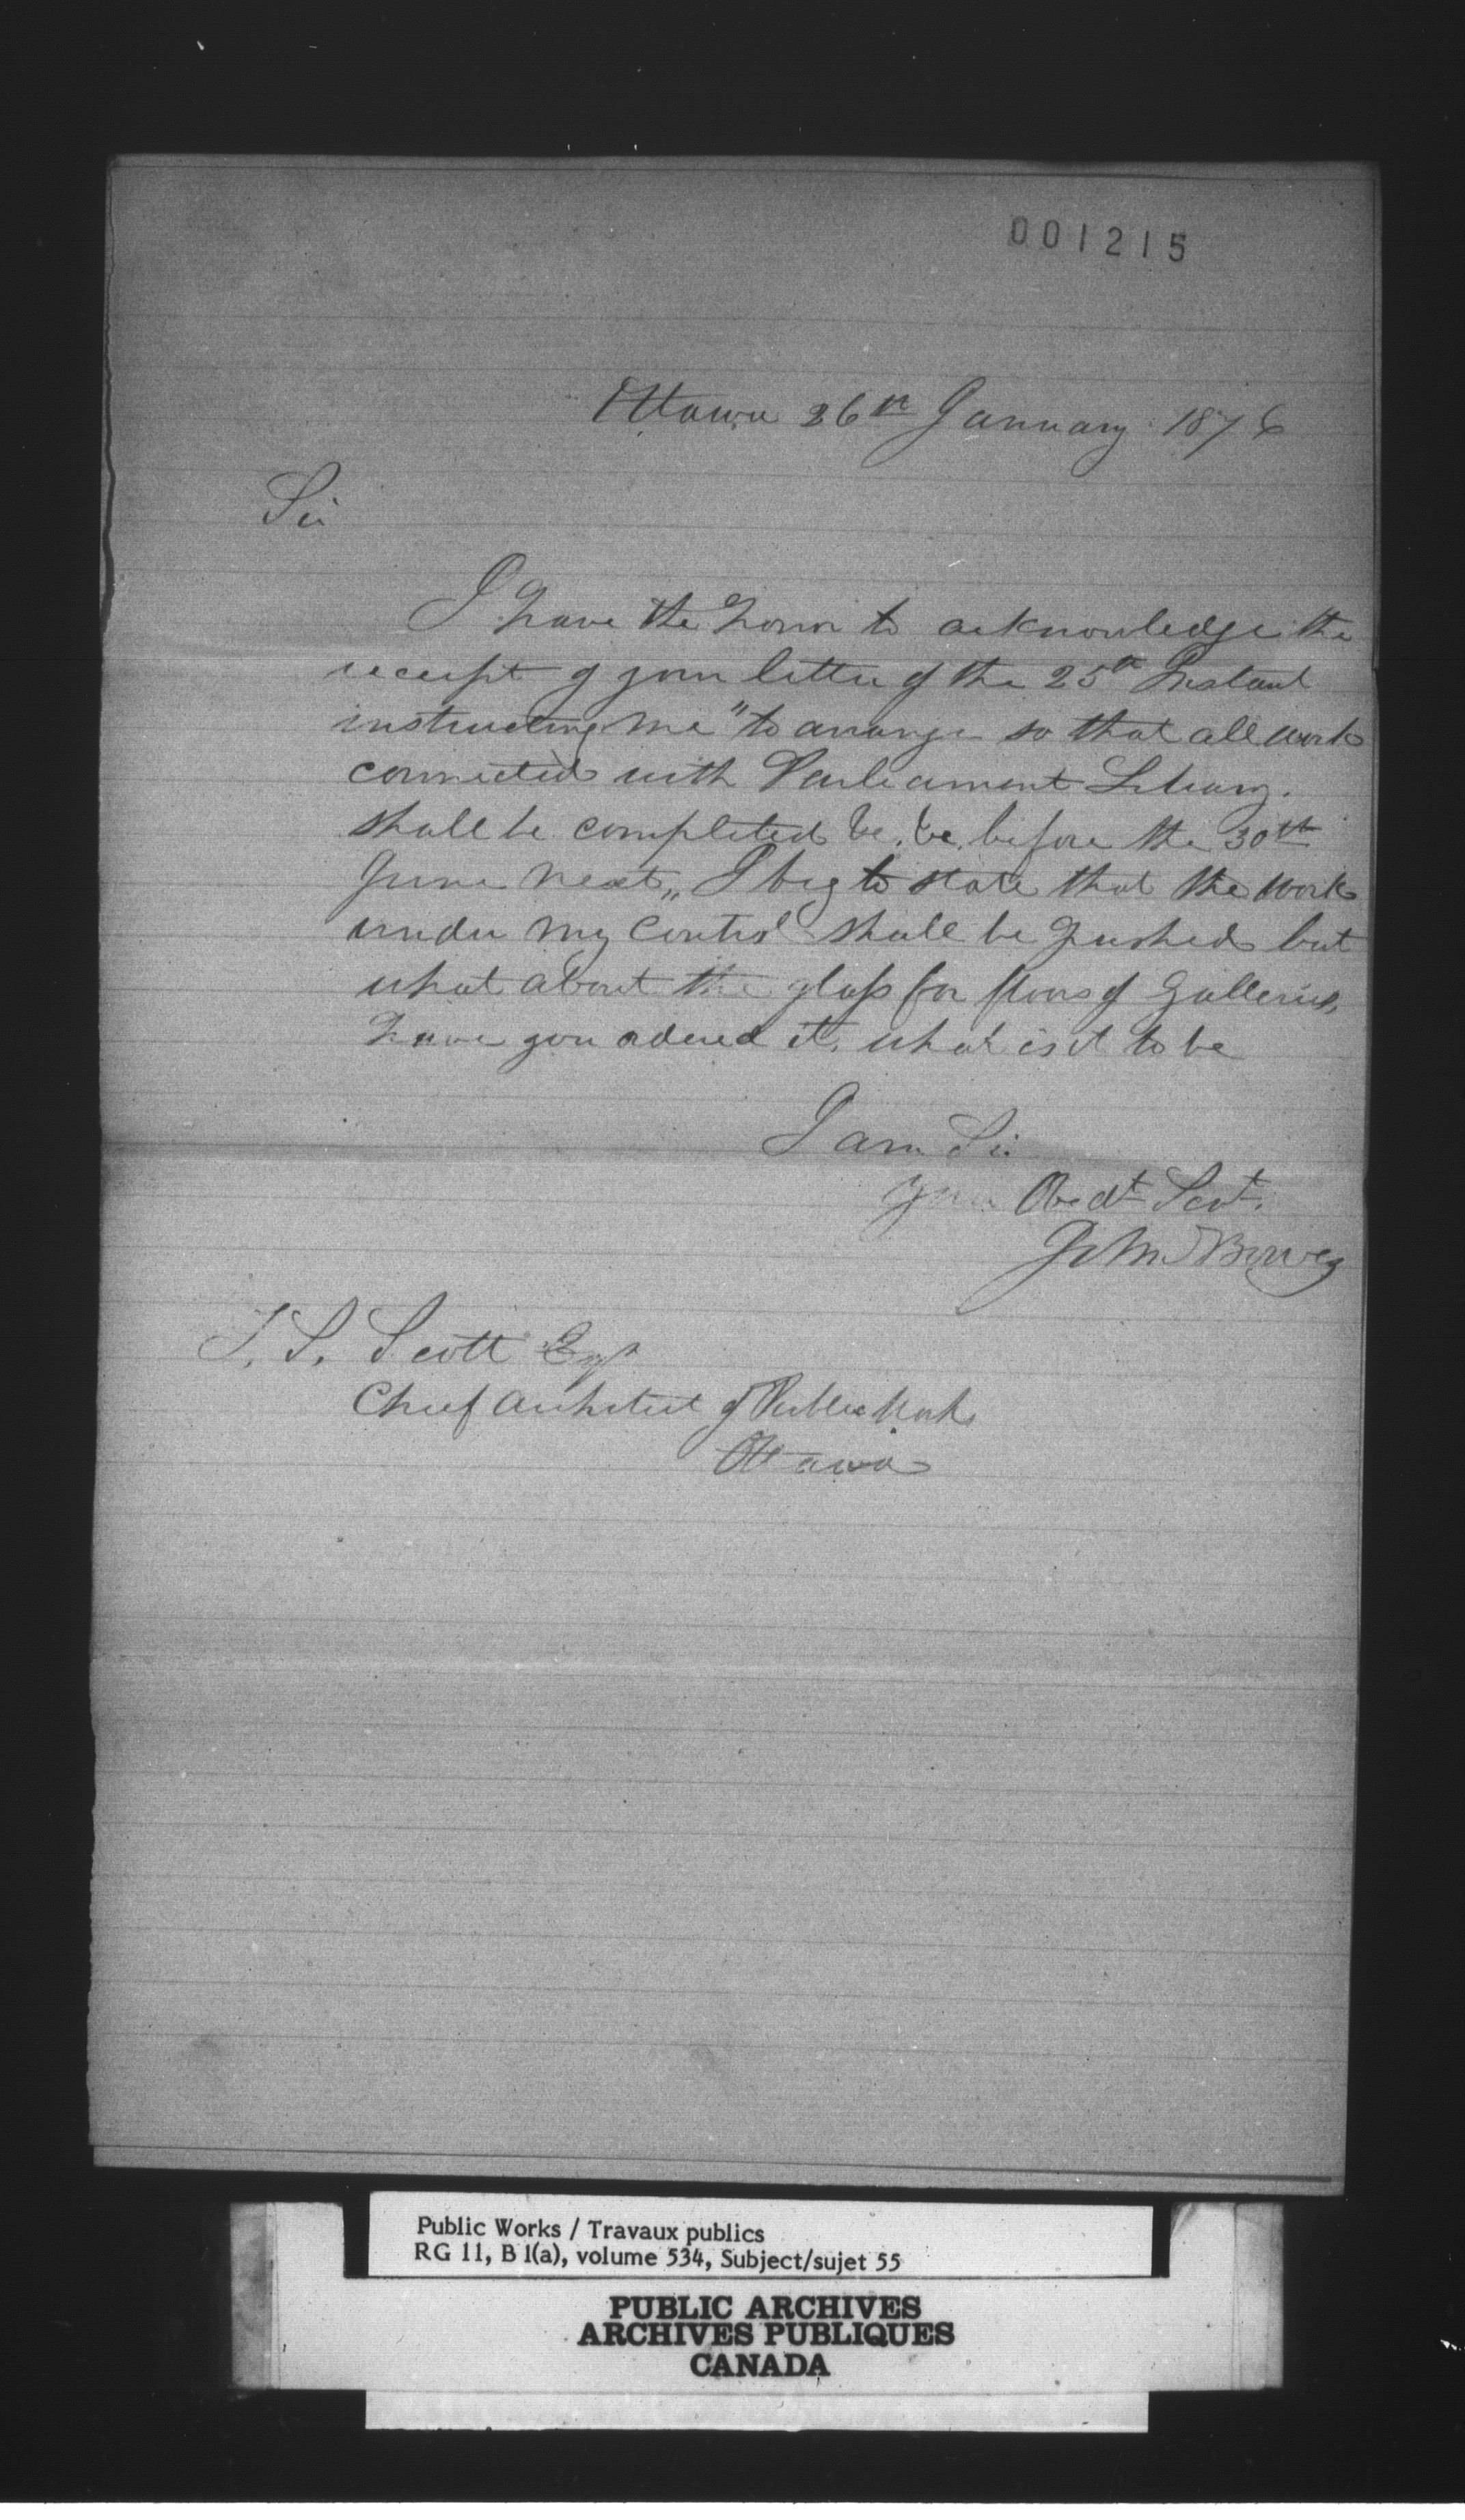 001215
Ottawa 26th January 1876
Sir
I have the honor to acknowledge the
receipt of your letter of the 25th Instant
instructing me "to arrange so that all work
connected with Parliament Library.
shall be completed &c. &c. before the 30th
June next„ I beg to state that the work
under my control shall be pushed but
what about the glass for floors of Galleries,
have you ordered it, what is it to be
I am Sir
Your Obedt Servt.
John Bowes
T. S. Scott Esqr
Chief Architect of Public Works
Ottawa
Public Works / Travaux publics
RG 11, B 1(a), volume 534, Subject/sujet 55
PUBLIC ARCHIVES
ARCHIVES PUBLIQUES
CANADA